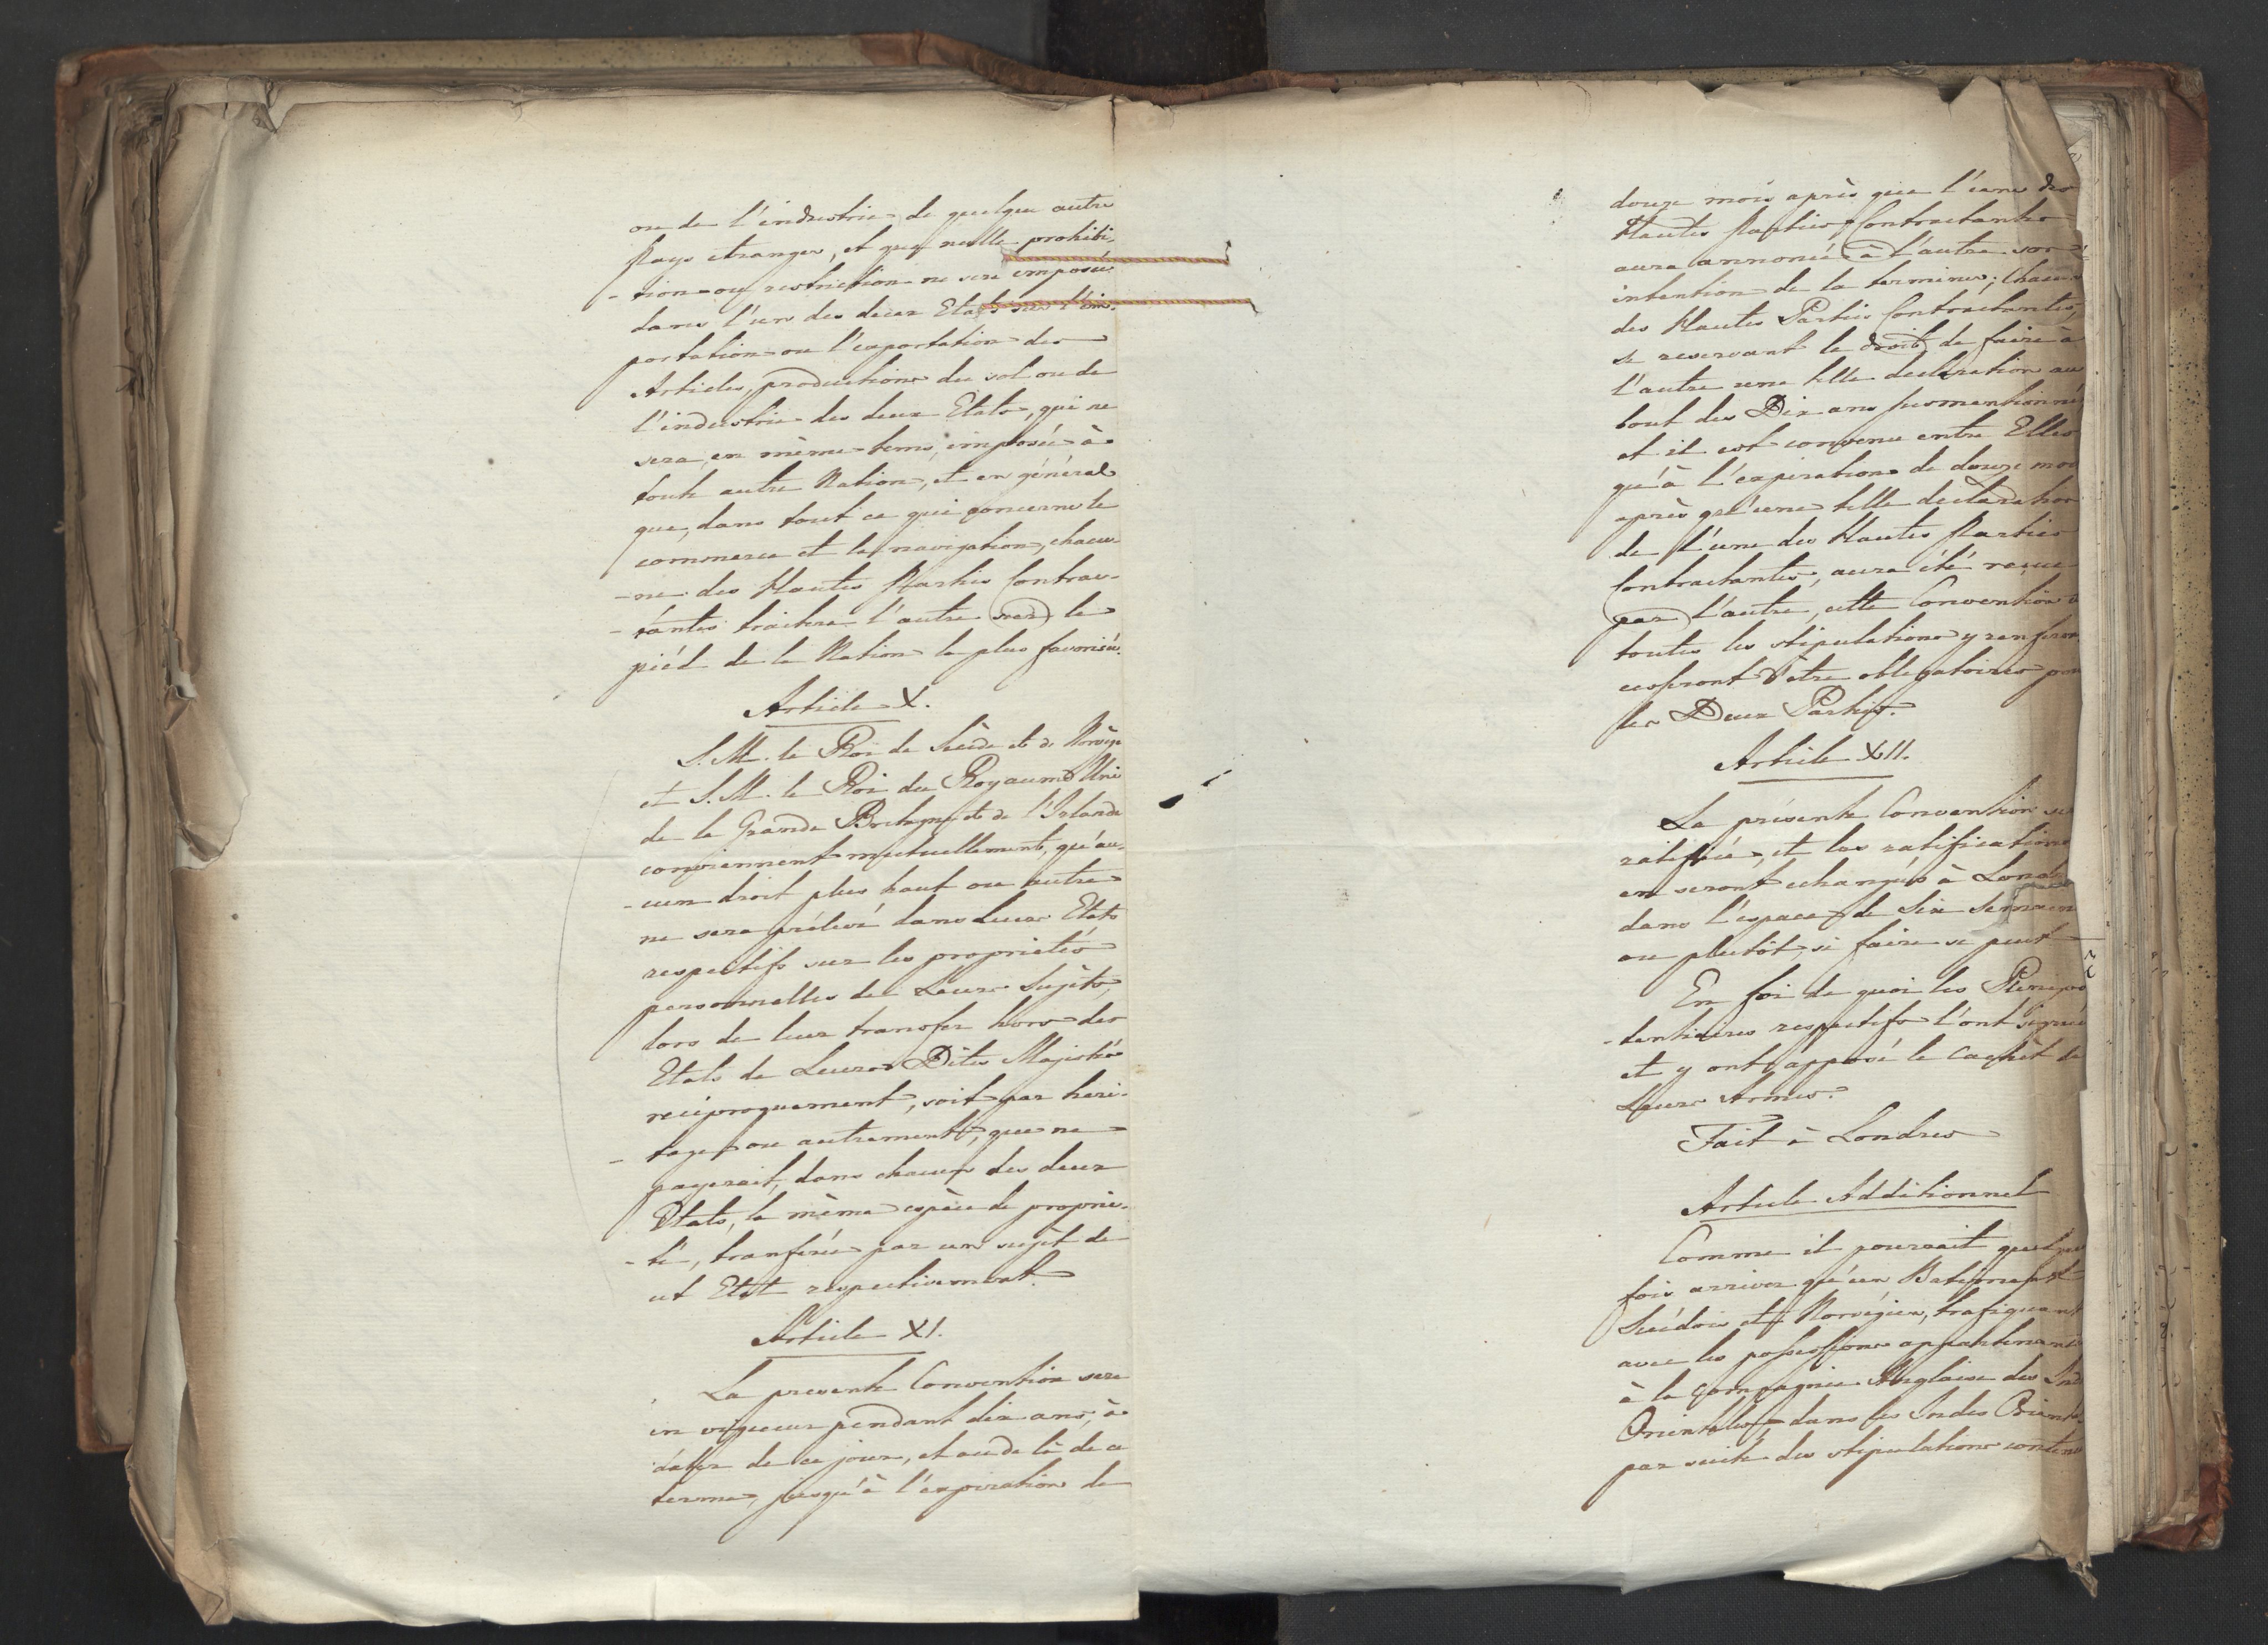 ou de l'industrie de quelque autre
Pays étranger, et que nulle prohibi-
-tion ou restriction ne sera imposée
dans l'un des deux Etats sur l'im-
portation ou l'exportation des
Articles, productions du sol ou de
l'industrie des deux Etats, qui ne
sera, en même-tems, imposée à
toute autre Nation, et en général
que, dans tout ce qui concerne le
commerce et la navigation, chacu-
-ne des Hautes Parties Contrac-
-tantes traitera l'autre sur le
piéd de la Nation la plus favorisée.
Article X.
S. M. le Roi de Suède et de Norvège
et S. M. le Roi du Royaume Uni
de la Grande Bretagne et de l'Irlande
conviennent mutuellement, qu'au-
-cun droit plus haut ou autre
ne sera prélevé dans Leurs Etats
respectifs sur les propriétés
personnelles de Leurs Sujets,
lors de leur transfer hors des
Etats de Leurs Dites Majestés
reciproquement, soit par heri-
-tage ou autrement, que ne
payerait, dans chacun des deux
Etats, la même espèce de proprie-
-té, transferée par un sujèt de
cet Etat respectivement.
Article XI.
La presente Convention sera
en vigueur pendant dix ans, à
dater de ce jour, et au de là de ce
terme, jusqu'à l'expiration de
douze mois après que l'une des
Hautes Parties Contractantes
aura annoncé à l'autre son
intention de la terminer; Chacune
des Hautes Parties Contractantes,
se reservant le droit de faire à
l'autre une telle declaration au
bout des Dix ans susmentionné
et il est convenu entre Elles
qu'à l'expiration de douze mois
après qu'une telle declaration
de l'une des Hautes Parties
Contractantes, aura été reçue
par l'autre, cette Convention
toutes les stipulations y renferm
cesseront d'être obligatoires pour
les Deux Parties.
Article XII.
La présente Convention se
ratifiée, et les ratifications
en seront echangés à Lond
dans l'espace de Six Semain
ou plutôt, si faire se peut
En foi de quoi les Plenipo
-tentiaires respectifs l'ont signée
et y ont apposé le Cachèt de
Leurs Armes.
Fait à Londres
Article Additionnel
Comme il pourrait quelque
fois arriver qu'un Batiment
Suédois et Norvégien, trafiquant
avec les possessions appartenant
à la Compagnie Anglaise des Ind
Orientales dans les Indes Orient
par suite des stipulations conten